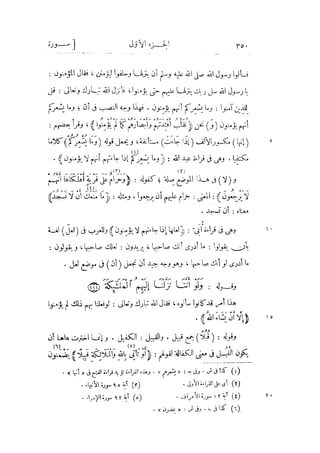 ٣٥٠ الجزء الأول [ سورة
فسألوا رسول الله صلى الله عليه وسلم أن ينزلها وحلفوا ليؤمنن ، فقال المؤمنون :
يا رسول الله سل ربك ينزلها عليهم حتى يؤمنوا ، فأنزل الله تبارك وتعالى : قل
للذين آمنوا : وما يشعركم أنهم يؤمنون . فهذا وجه النصب فى أنّ ؛ وما يشعركم
أنهم يؤمنون ( و ) نحن ( نقلب أفئدتهم وأبصارهم كما لم يؤمنوا ) ، وقرأ بعضهم :
٥ ( إنها ) مكسور الألف ( إذا جاءت ) مستأنفة ، ويجعل قوله ( وما يشعركم ) كلاما
مكتفيا . وهى فى قراءة عبد الله : ( وما يشعركم إذا جاءتهم أنهم لا يؤمنون ) .
و ( لا ) فى هذا الموضع صلة ؛ كقوله : ( وحرام على قرية أهلكناها أنهم
لا يرجعون ) : المعنى : حرام عليهم أن يرجعوا . ومثله : ( ما منعك أن لا تسجد )
معناه : أن تسجد .
١٠ وهى فى قراءة أبىّ : ( لعلها إذا جاءتهم لا يؤمنون ) وللعرب فى ( لعلّ ) لغة
بأن يقولوا : ما أدرى أنك صاحبها ، يريدون : لعلك صاحبها ، ويقولون :
ما أدرى لو أنك صاحبها ، وهو وجه جيد أن تجعل ( أنّ ) فى موضع لعل .
وقوله : ولو أننا نزلنا إليهم الملائكة (١١١)
هذا أمر قد كانوا سألوه ، فقال الله تبارك وتعالى : لو فعلنا بهم ذلك لم يؤمنوا
١٥ ( إلا أن يشاء الله ) .
وقوله : ( قبلا ) جمع قبيل . والقبيل : الكفيل . وإنما اخترت هاهنا أن
يكون القبل فى معنى الكفالة لقولهم : ( أو تأتى بالله والملائكة قبيلا ) يضمنون
(١) كذا فى ش . وفى ج : « يشعرهم » . وهذه القراءة تؤيد قراءة الفتح فى « أنها » .
(٢) أى على القراءة الأولى . (٣) آية ٩٥ سورة الأنبياء .
٢٠ (٤) آية ١٢ سورة الأعراف . (٥) آية ٩٢ سورة الإسراء .
(٦) كذا فى ج . وفى ش :